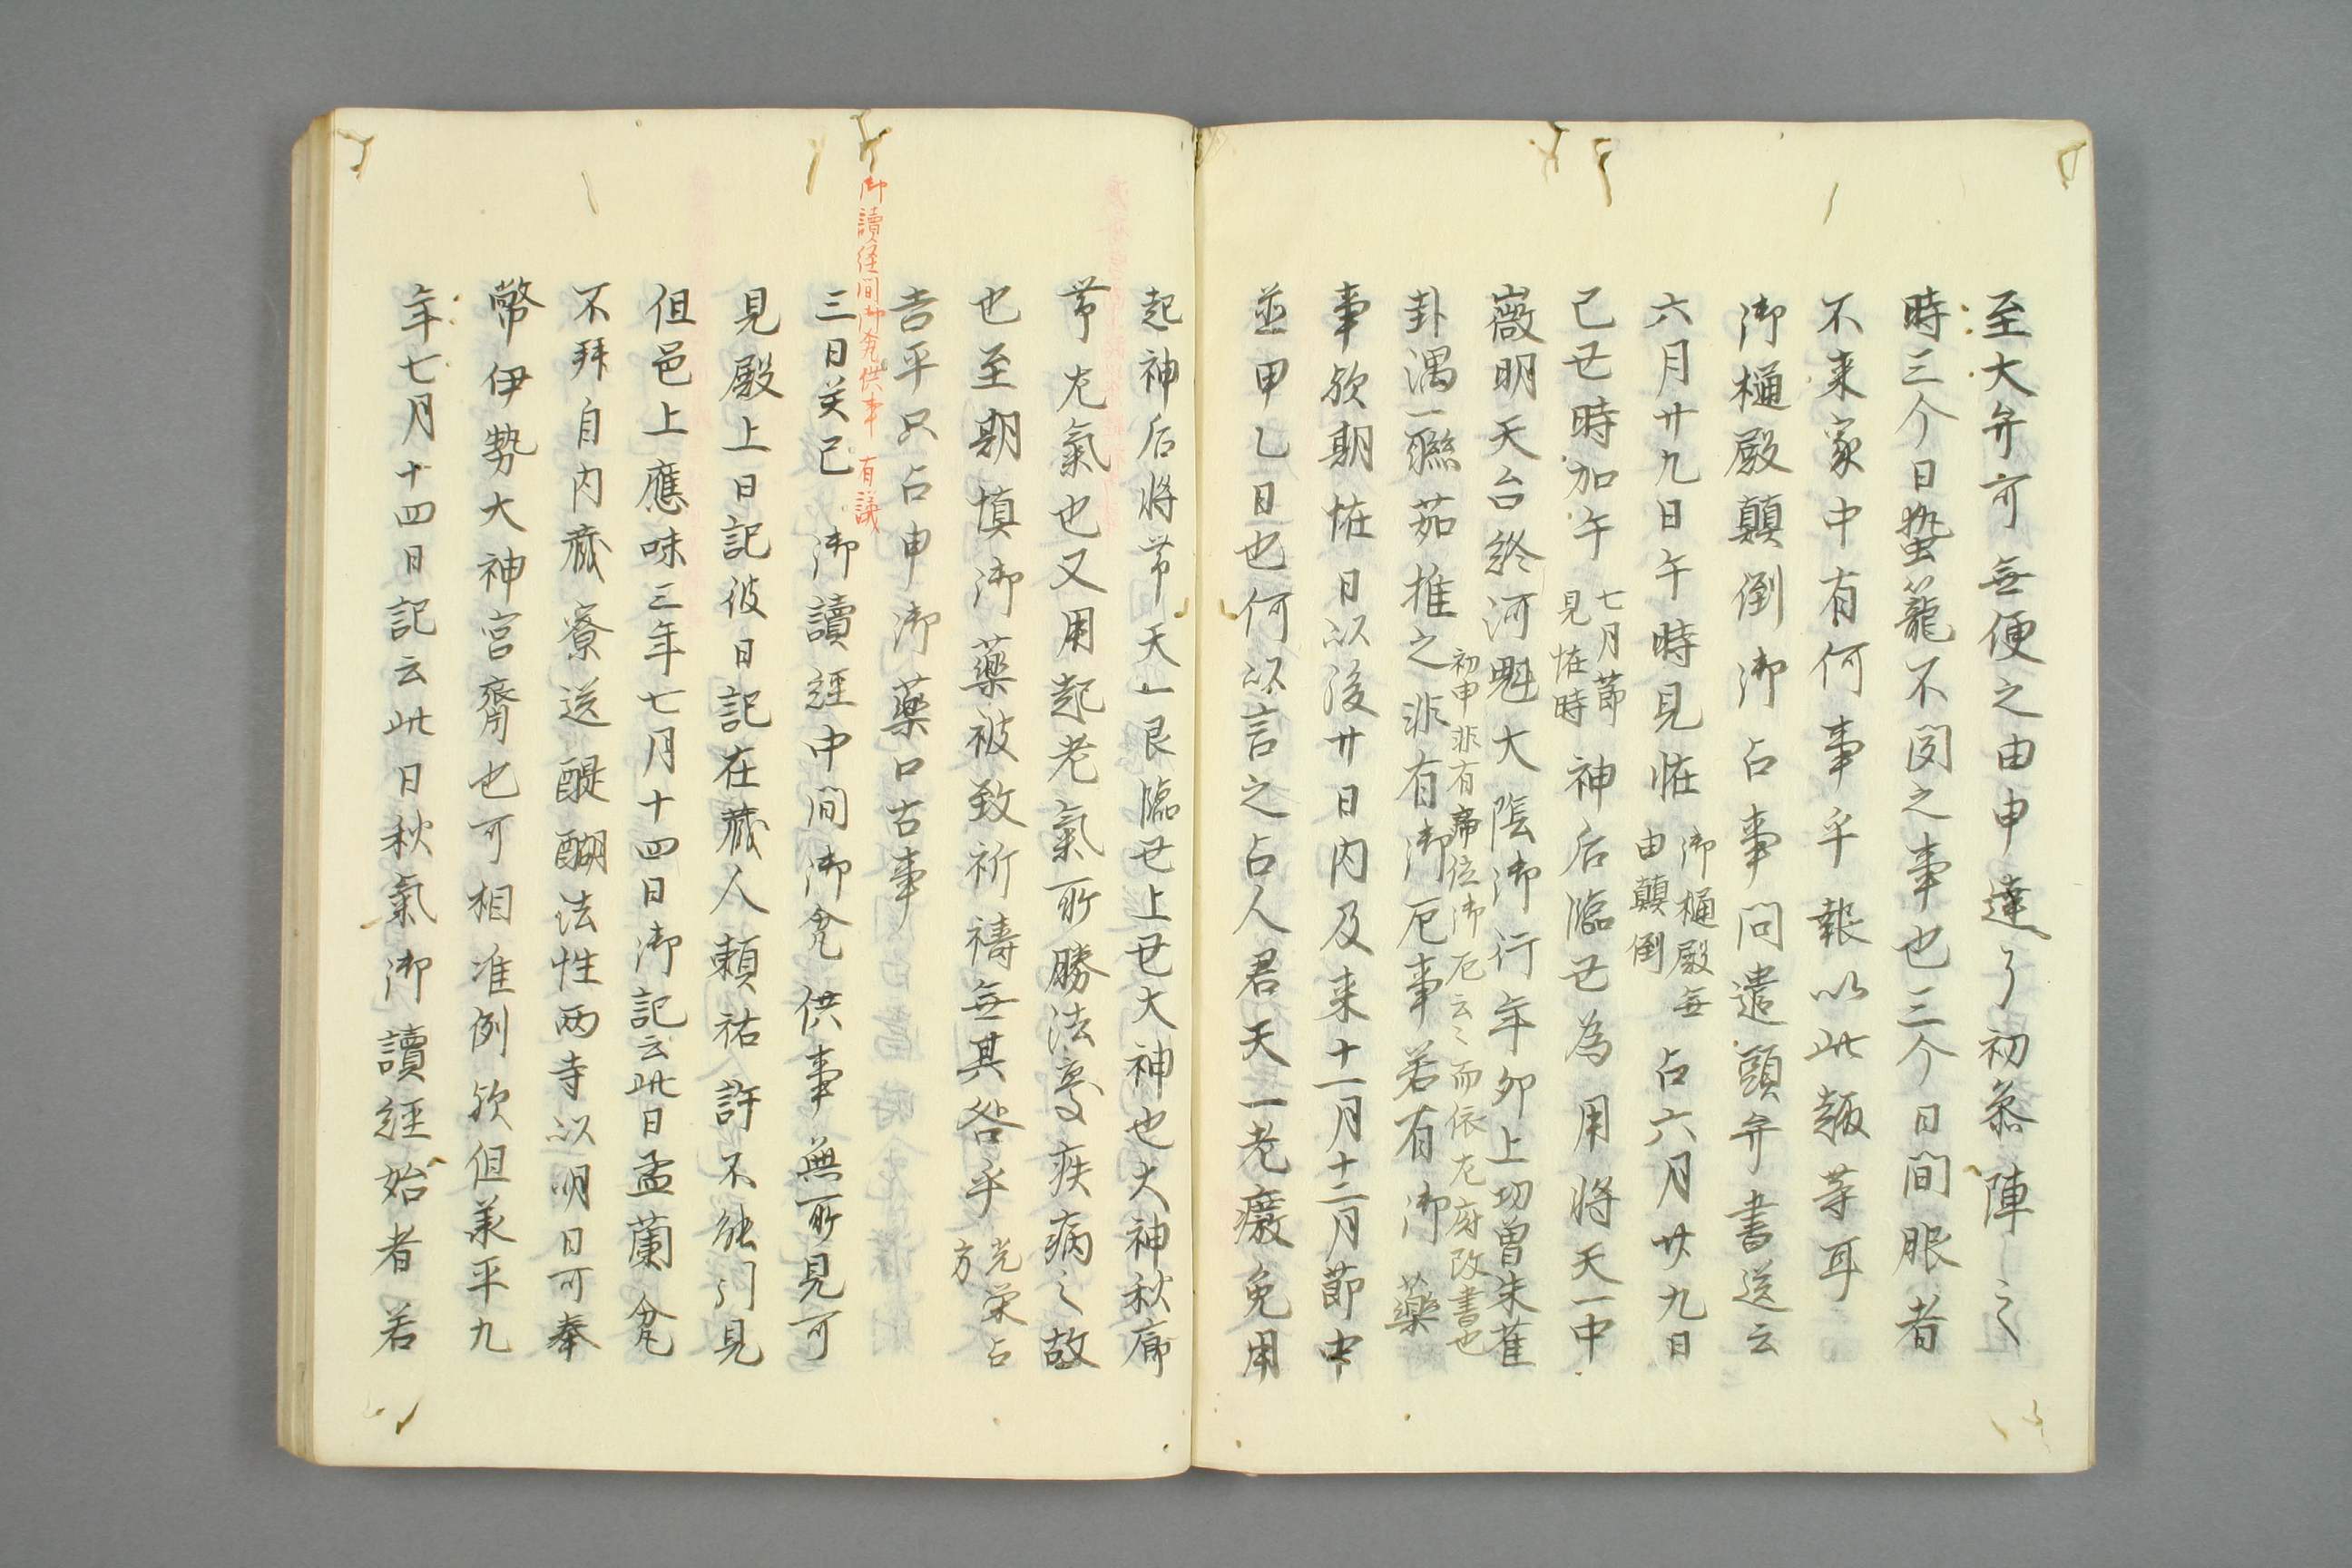 至大弁可無便之由申達了初参陣之〻
時三个日蟄籠不閇之事也三个日間服者
不来家中有何事乎報以此趣等耳
御樋殿顛倒御占事問遣頭弁書送云
六月廿九日午時見恠 御樋殿無由顛倒 占六月廿九日
己丑時加午 七月節見恠時 神后臨丑為用将天一中
蕨明天台終河魁大陰御行年卯上功曽朱雀
卦遇一聯茹推之非有御厄事若有御薬
初申非有帝位御厄云〻而依尤府改書也
事欤期恠日以後廿日内及来十一月十二月節中
並甲乙日也何以言之占人君天一老癈免用
起神后将帯天一艮臨丑上丑大神也大神秋廊
帯尤氣也又用起老氣所勝法憂疾病之故
也至期慎御薬被致祈禱無其咎乎 光栄占方
吉平只占申御薬口古事
御讀経間御盆供事 有議
三日癸己 御讀経中間御盆供事無所見可
見殿上日記彼日記在蔵人頼祐許不能引見
但邑上應味三年七月十四日御記云此日盂蘭盆
不拜自内蔵寮送醍醐法性两寺以明日可奉
幣伊勢大神宮齋也可相准例欤但羕平九
年七月十四日記云此日秋氣御讀経始者若